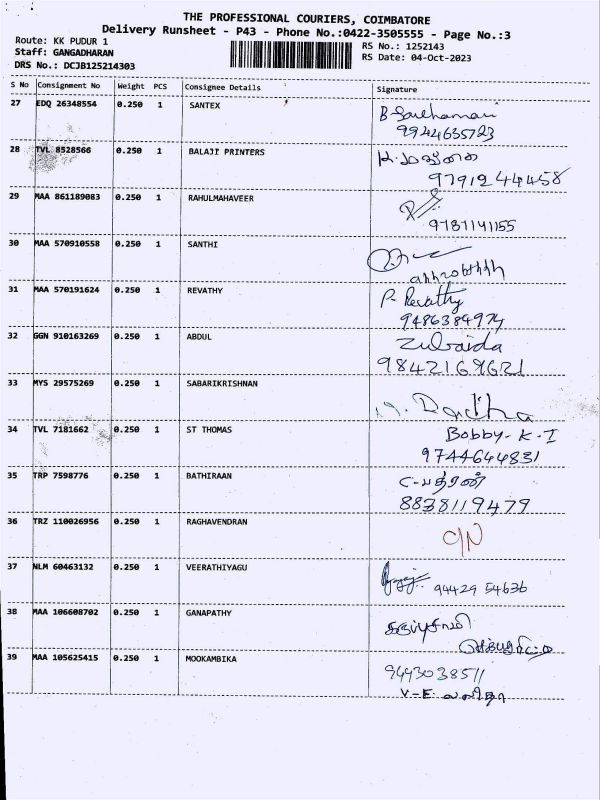 THE PROFESSIONAL COURIERS, COIMBATORE
Delivery Runsheet - P43 - Phone No.:0422-3505555 - Page No.:3
Route: KK PUDUR 1
RS No.: 1252143
Staff: GANGADHARAN
RS Date: 04-Oct-2023
DRS No.: DCJB125214303
S No Consignment No Weight PCS Consignee Details Signature
27 EDQ 26348554 0.250 1 SANTEX
9944635723
28 TVL 8528566 0.250 1 BALAJI PRINTERS
9791244458
29 MAA 861189083 0.250 1 RAHULMAHAVEER
9787141155
30 MAA 570910558 0.250 1 SANTHI
31 MAA 570191624 0.250 1 REVATHY
P. Revathy
9486384974
32 GGN 910163269 0.250 1 ABDUL
Zubaida
9842169621
33 MYS 29575269 0.250 1 SABARIKRISHNAN
34 TVL 7181662 0.250 1 ST THOMAS
Bobby- K-I
9744644831
35 TRP 7598776 0.250 1 BATHIRAAN
8838119479
36 TRZ 110026956 0.250 1 RAGHAVENDRAN
37 NLM 60463132 0.250 1 VEERATHIYAGU
94429 54636
38 MAA 106608702 0.250 1 GANAPATHY
39 MAA 105625415 0.250 1 MOOKAMBIKA
9443038511